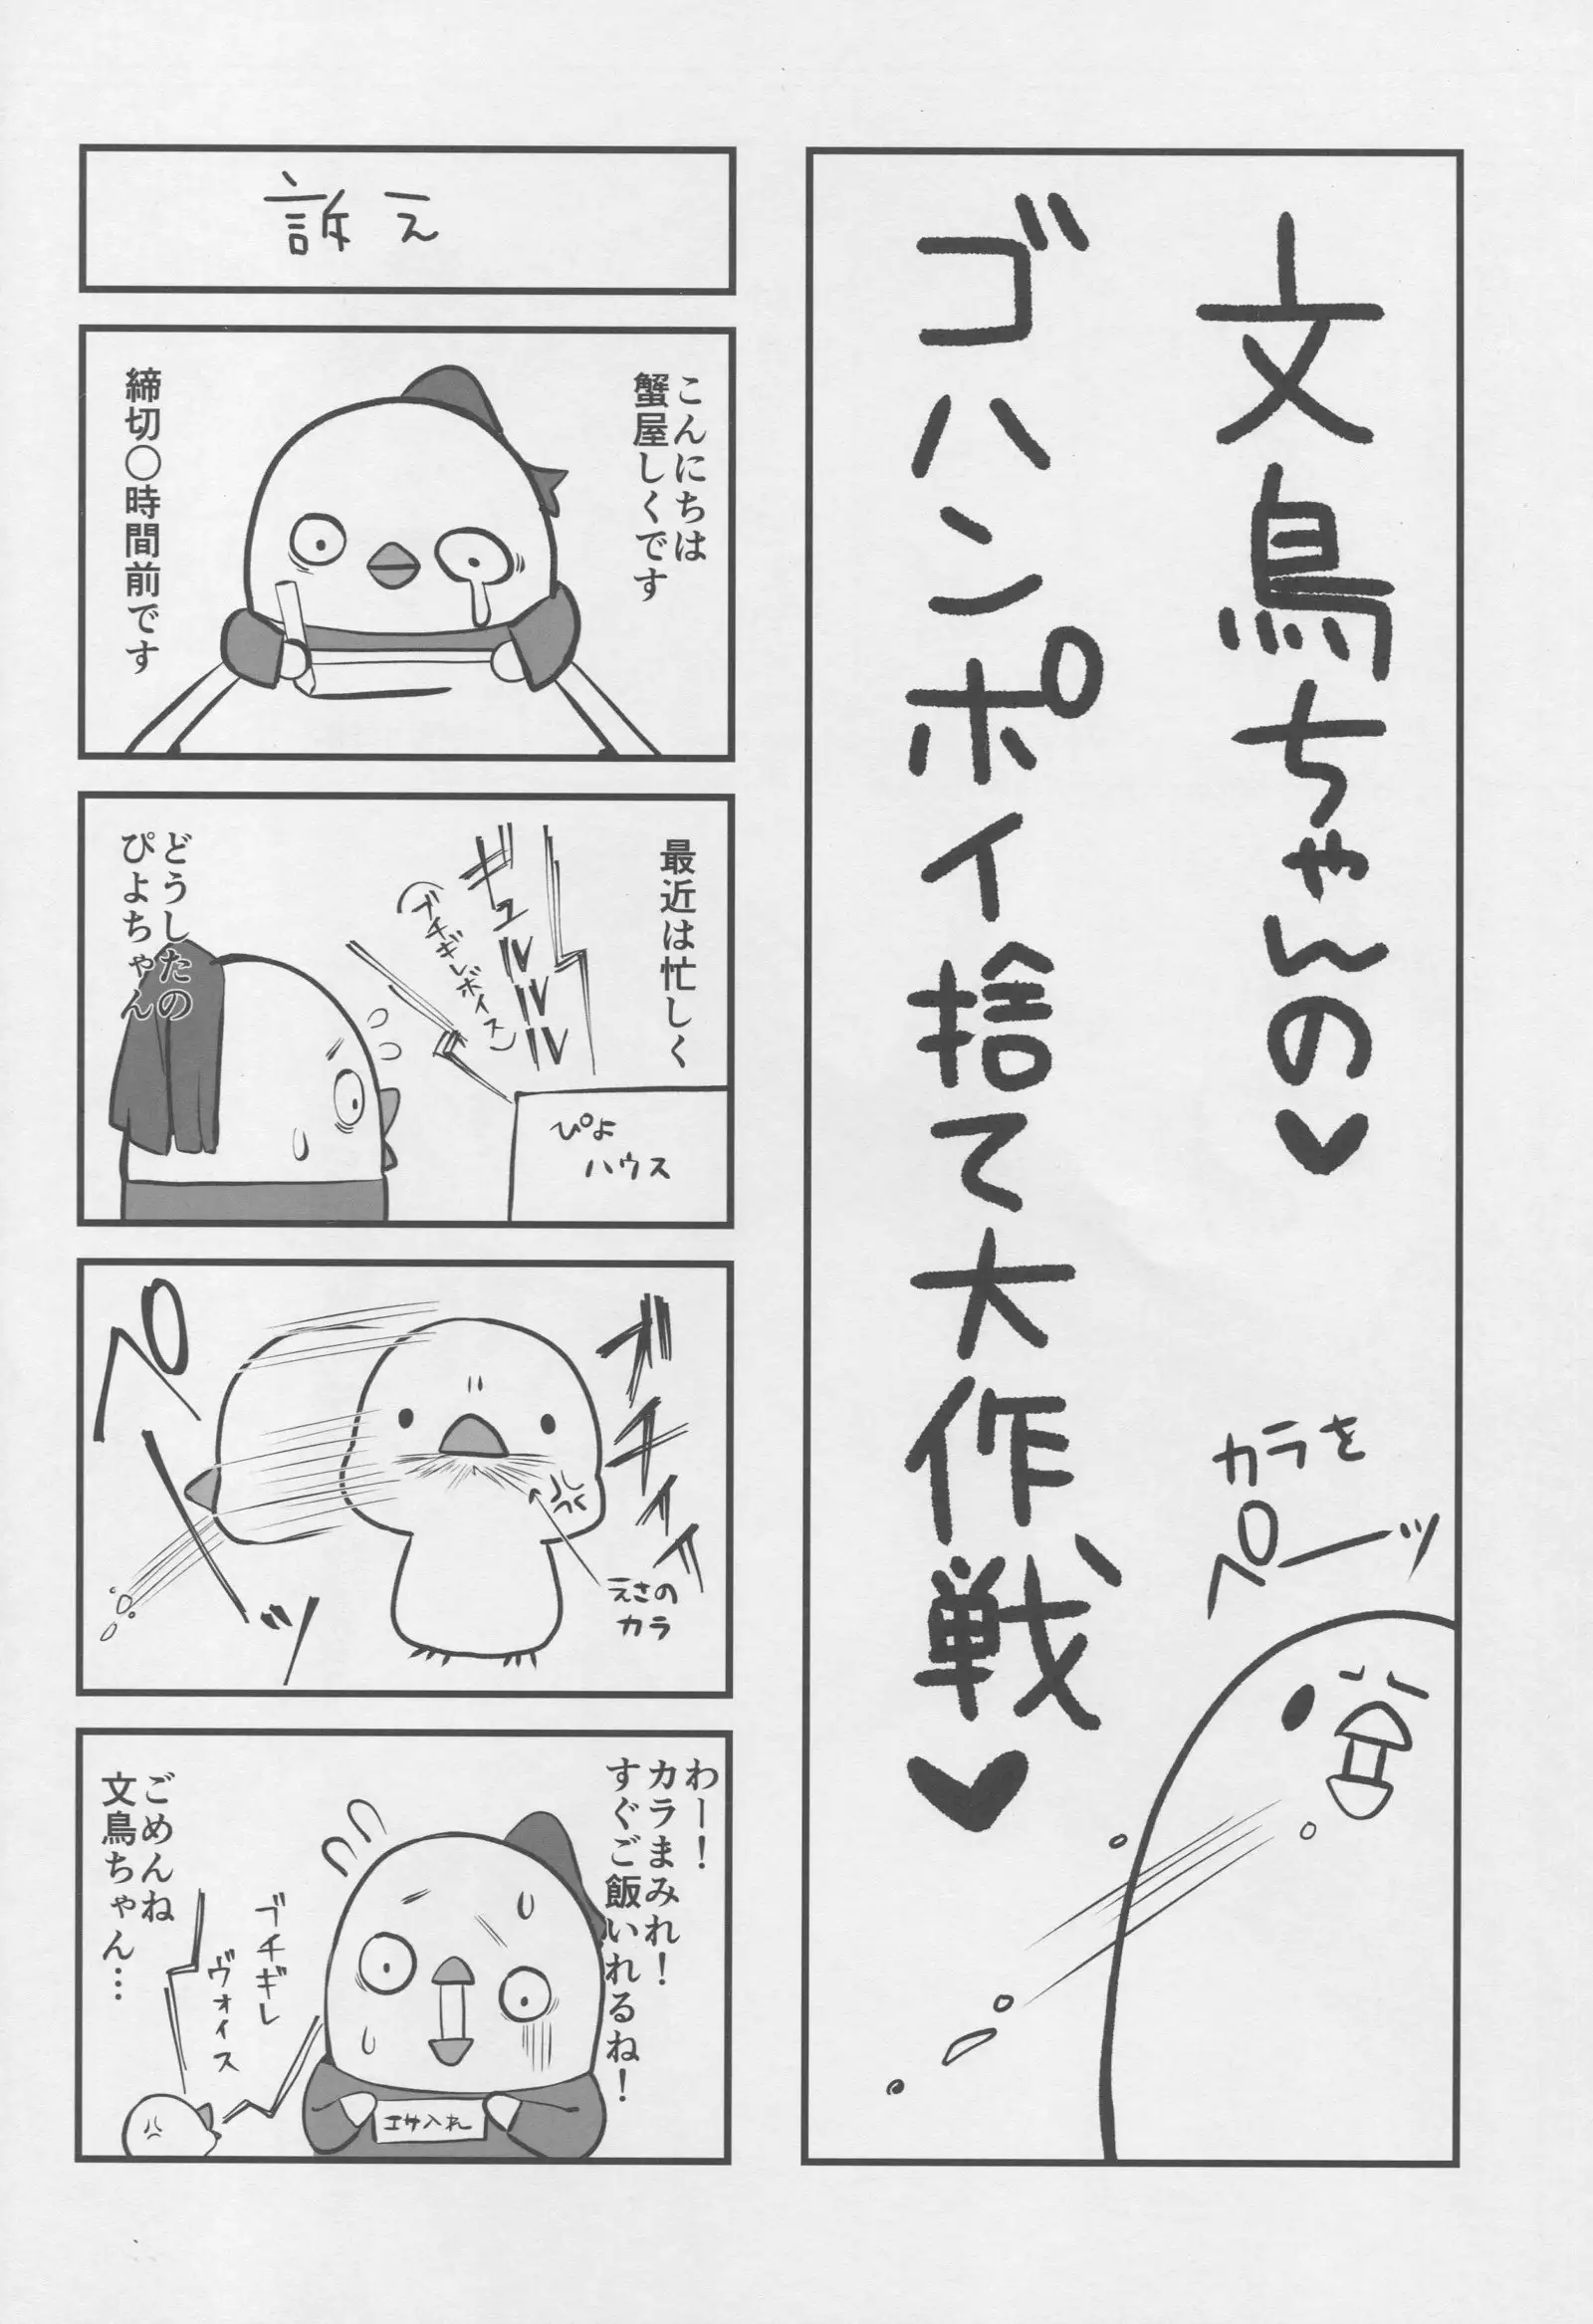 文鳥ちゃんの♥
ゴハンポイ捨て大作戦♥
カラを
ペーッ
訴え
こんにちは
蟹屋しくです
締切〇時間前です
最近は忙しく
ギュルルル
(ブチギレボイス)
ぴよ
ハウス
どうしたの
ぴよちゃん
ガチィィ
えさの
カラ
ペッッ
わー！
カラまみれ！
すぐご飯いれるね！
エサ入れ
ブチギレ
ヴォイス
ごめんね
文鳥ちゃん…